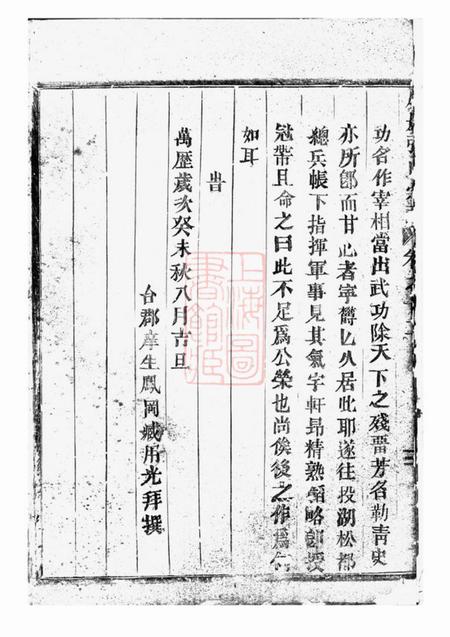 功名作宰相當出武功除天下之殘畱芳名勒青史
亦所卽而甘此者寧欝以久居此耶遂往投湖松都
總兵帳下指揮軍事見其氣宇軒昂精熟韜略卽授
冠帶且命之曰此不足爲公榮也尚俟後之作爲何
如耳
旹
萬歷歲次癸未秋八月吉旦
台郡庠生鳳岡臧用光拜撰
上海圖書館藏